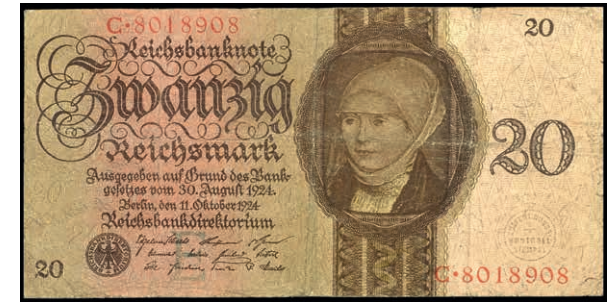 C·8018908
Reichsbanknote
20
Zwanzig
Reichsmark
20
Ausgegeben auf Grund des Bank-
gesetzes vom 30. August 1924.
Berlin, den 11. Oktober 1924
Reichsbankdirektorium
20
C·8018908